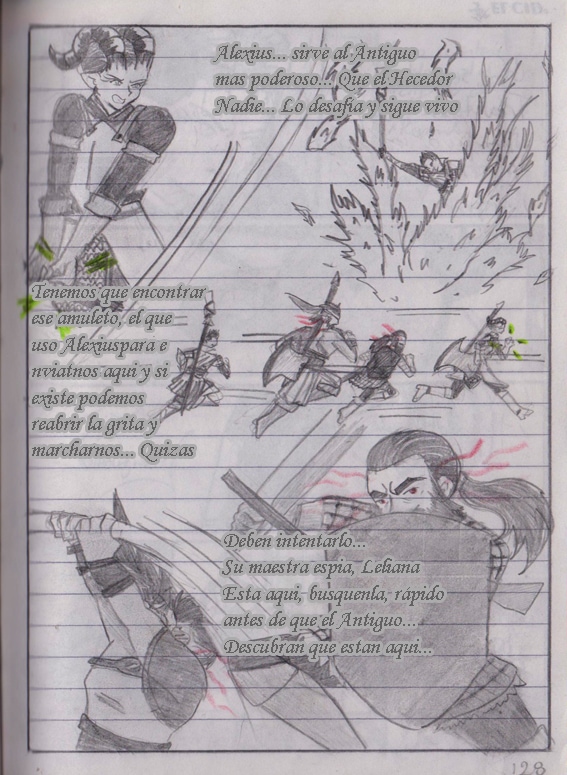 EL CID.
Alexius... sirve al Antiguo
mas poderoso... Que el Hecedor
Nadie... Lo desafia y sigue vivo
Tenemos que encontrar
ese amuleto, el que
uso Alexiuspara e
nviatnos aqui y si
existe podemos
reabrir la grita y
marcharnos... Quizas
Deben intentarlo...
Su maestra espia, Leliana
Esta aqui, busquenla, rápido
antes de que el Antiguo...
Descubran que estan aqui...
128